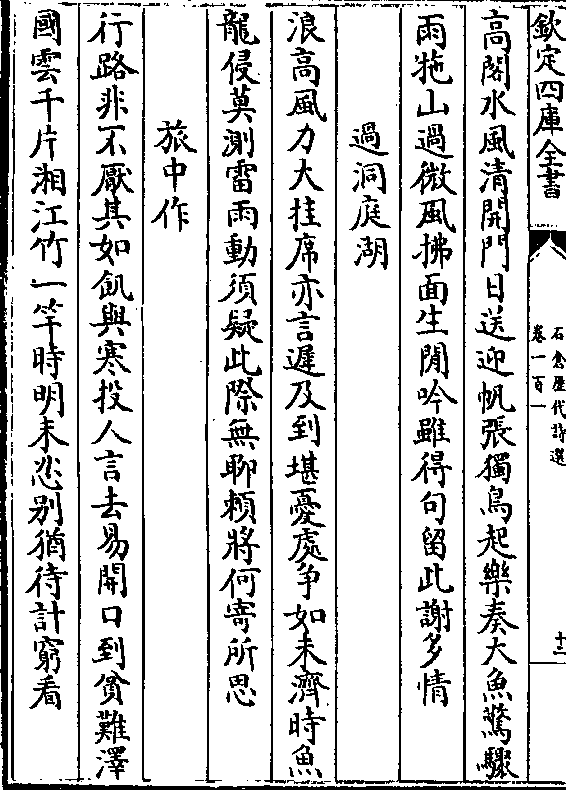 欽定四庫全書
石倉歴代詩選
卷一百一
十二
高閣水風清開門日送迎帆張獨鳥起樂奏大魚驚驟
雨牠山過微風拂面生閒吟雖得句留此謝多情
過洞庭湖
浪高風力大挂席亦言遲及到堪憂處争如未濟時魚
龍侵莫測雷雨動須疑此際無聊頼將何寄所思
旅中作
行路非不厭其如飢與寒投人言去易開口到貧難澤
國雲千片湘江竹一竿時明未忍别猶待計窮看